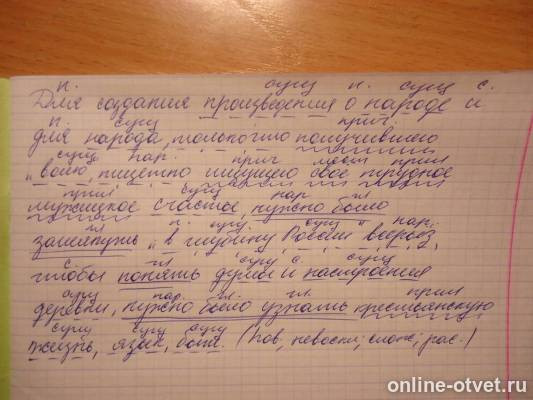 п. сущ п. сущ с.
Для создания произведения о народе и
п. сущ. прич.
для народа, только что получившего
сущ нар. прич мест прил
"волю, тщетно ищущего свое трудное
прил сущ нар. гл
мужицкое счастье, нужно было
гл п. сущ. сущ нар.
заглянуть "в глубину России" всерьез,
с. гл сущ с. сущ
чтобы понять думы и настроения
сущ нар. гл. гл. прил
деревни, нужно было узнать крестьянскую
сущ сущ сущ
жизнь, язык, быт. (пов, невоскл; слож; рас.)
online-otvet.ru